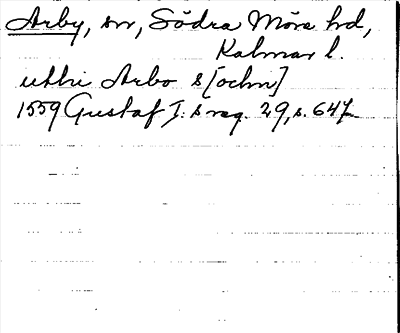 Arby, sn, Södra Möre hd,
Kalmar l.
utthi Arbo s[ochn]
1559 Gustaf I:s reg. 29, s. 647